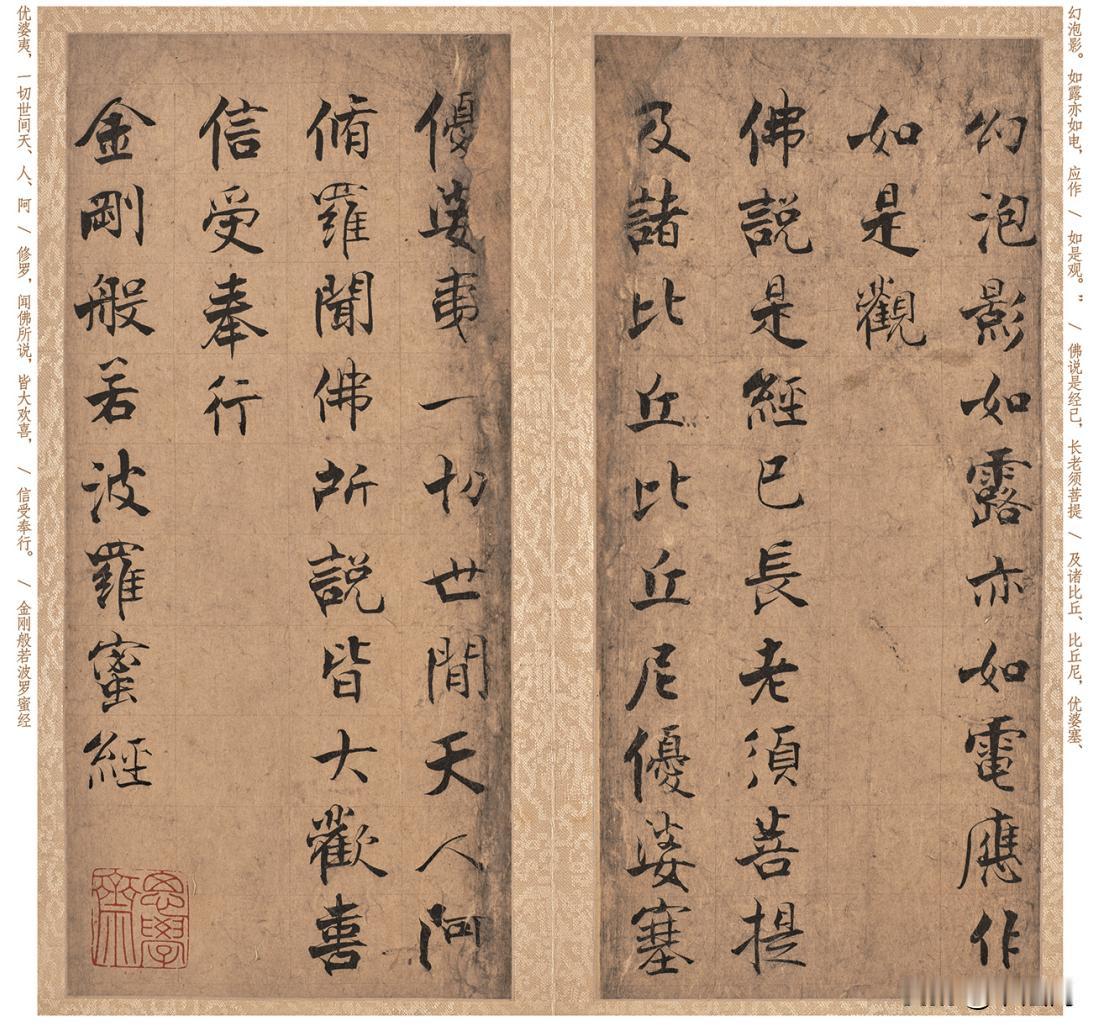 幻泡影。如露亦如电，应作 / 如是观。” / 佛说是经已，长老须菩提 / 及诸比丘、比丘尼，优婆塞、
幻泡影如露亦如電應作
如是觀
佛説是經已長老須菩提
及諸比丘比丘尼優婆塞
優婆夷一切世間天人阿
脩羅聞佛所説皆大歡喜
信受奉行
金剛般若波羅蜜經
思學齋
优婆夷，一切世间天、人、阿 / 修罗，闻佛所说，皆大欢喜， / 信受奉行。 / 金刚般若波罗蜜经